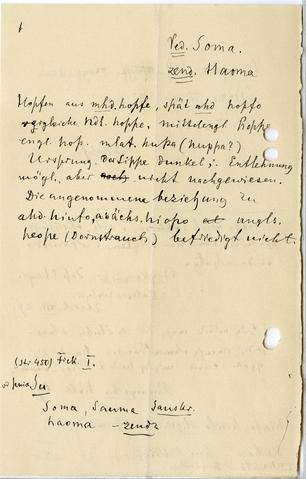 Ved. Soma.
zend. Haoma
Hopfen aus mhd. hopfe, spät ahd hopfo
vergleiche ndl. hoppe, mittelengl hoppe
engl. hop. mlat. hupa (huppa?)
Ursprung der Sippe dunkel; Entlehnung
mögl. aber noch nicht nachgewiesen.
Die angenommene beziehung zu
ahd. hiufo, altsächs. hiopo et angls.
heope (Dornstrauch) befriedigt nicht.
(Str 450) Fick I.
Su
Soma, Sauma Sanskr.
haoma – zend